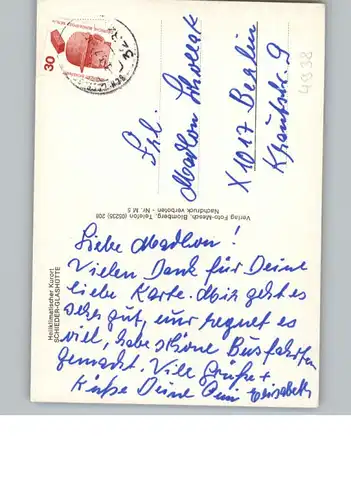 30
Frl.
Madlon
X 1017 Berlin
4838
Verlag Foto-Mesch, Blomberg, Telefon (05235) 201
Nachdruck verboten - Nr. M 5
Heilklimatischer Kurort
SCHIEDER-GLASHÜTTE
Liebe Madlon!
Vielen Dank für Deine
liebe Karte. Mir geht es
sehr gut, nur regnet es
viel, habe schöne Busfahrten
gemacht. Viele Grüße +
Küße Deine Omi Elisabeth